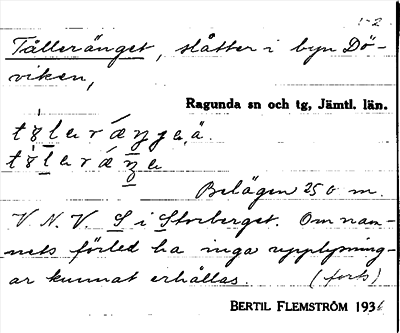 1-2
Tälleränget, slåtter i byn Dö-
viken,
Ragunda sn och tg, Jämtl. län.
Belägen 250 m.
V.N.V. S i Storberget. Om nam-
nets förled ha inga upplysning-
ar kunnat erhållas. (forts)
BERTIL FLEMSTRÖM 1936